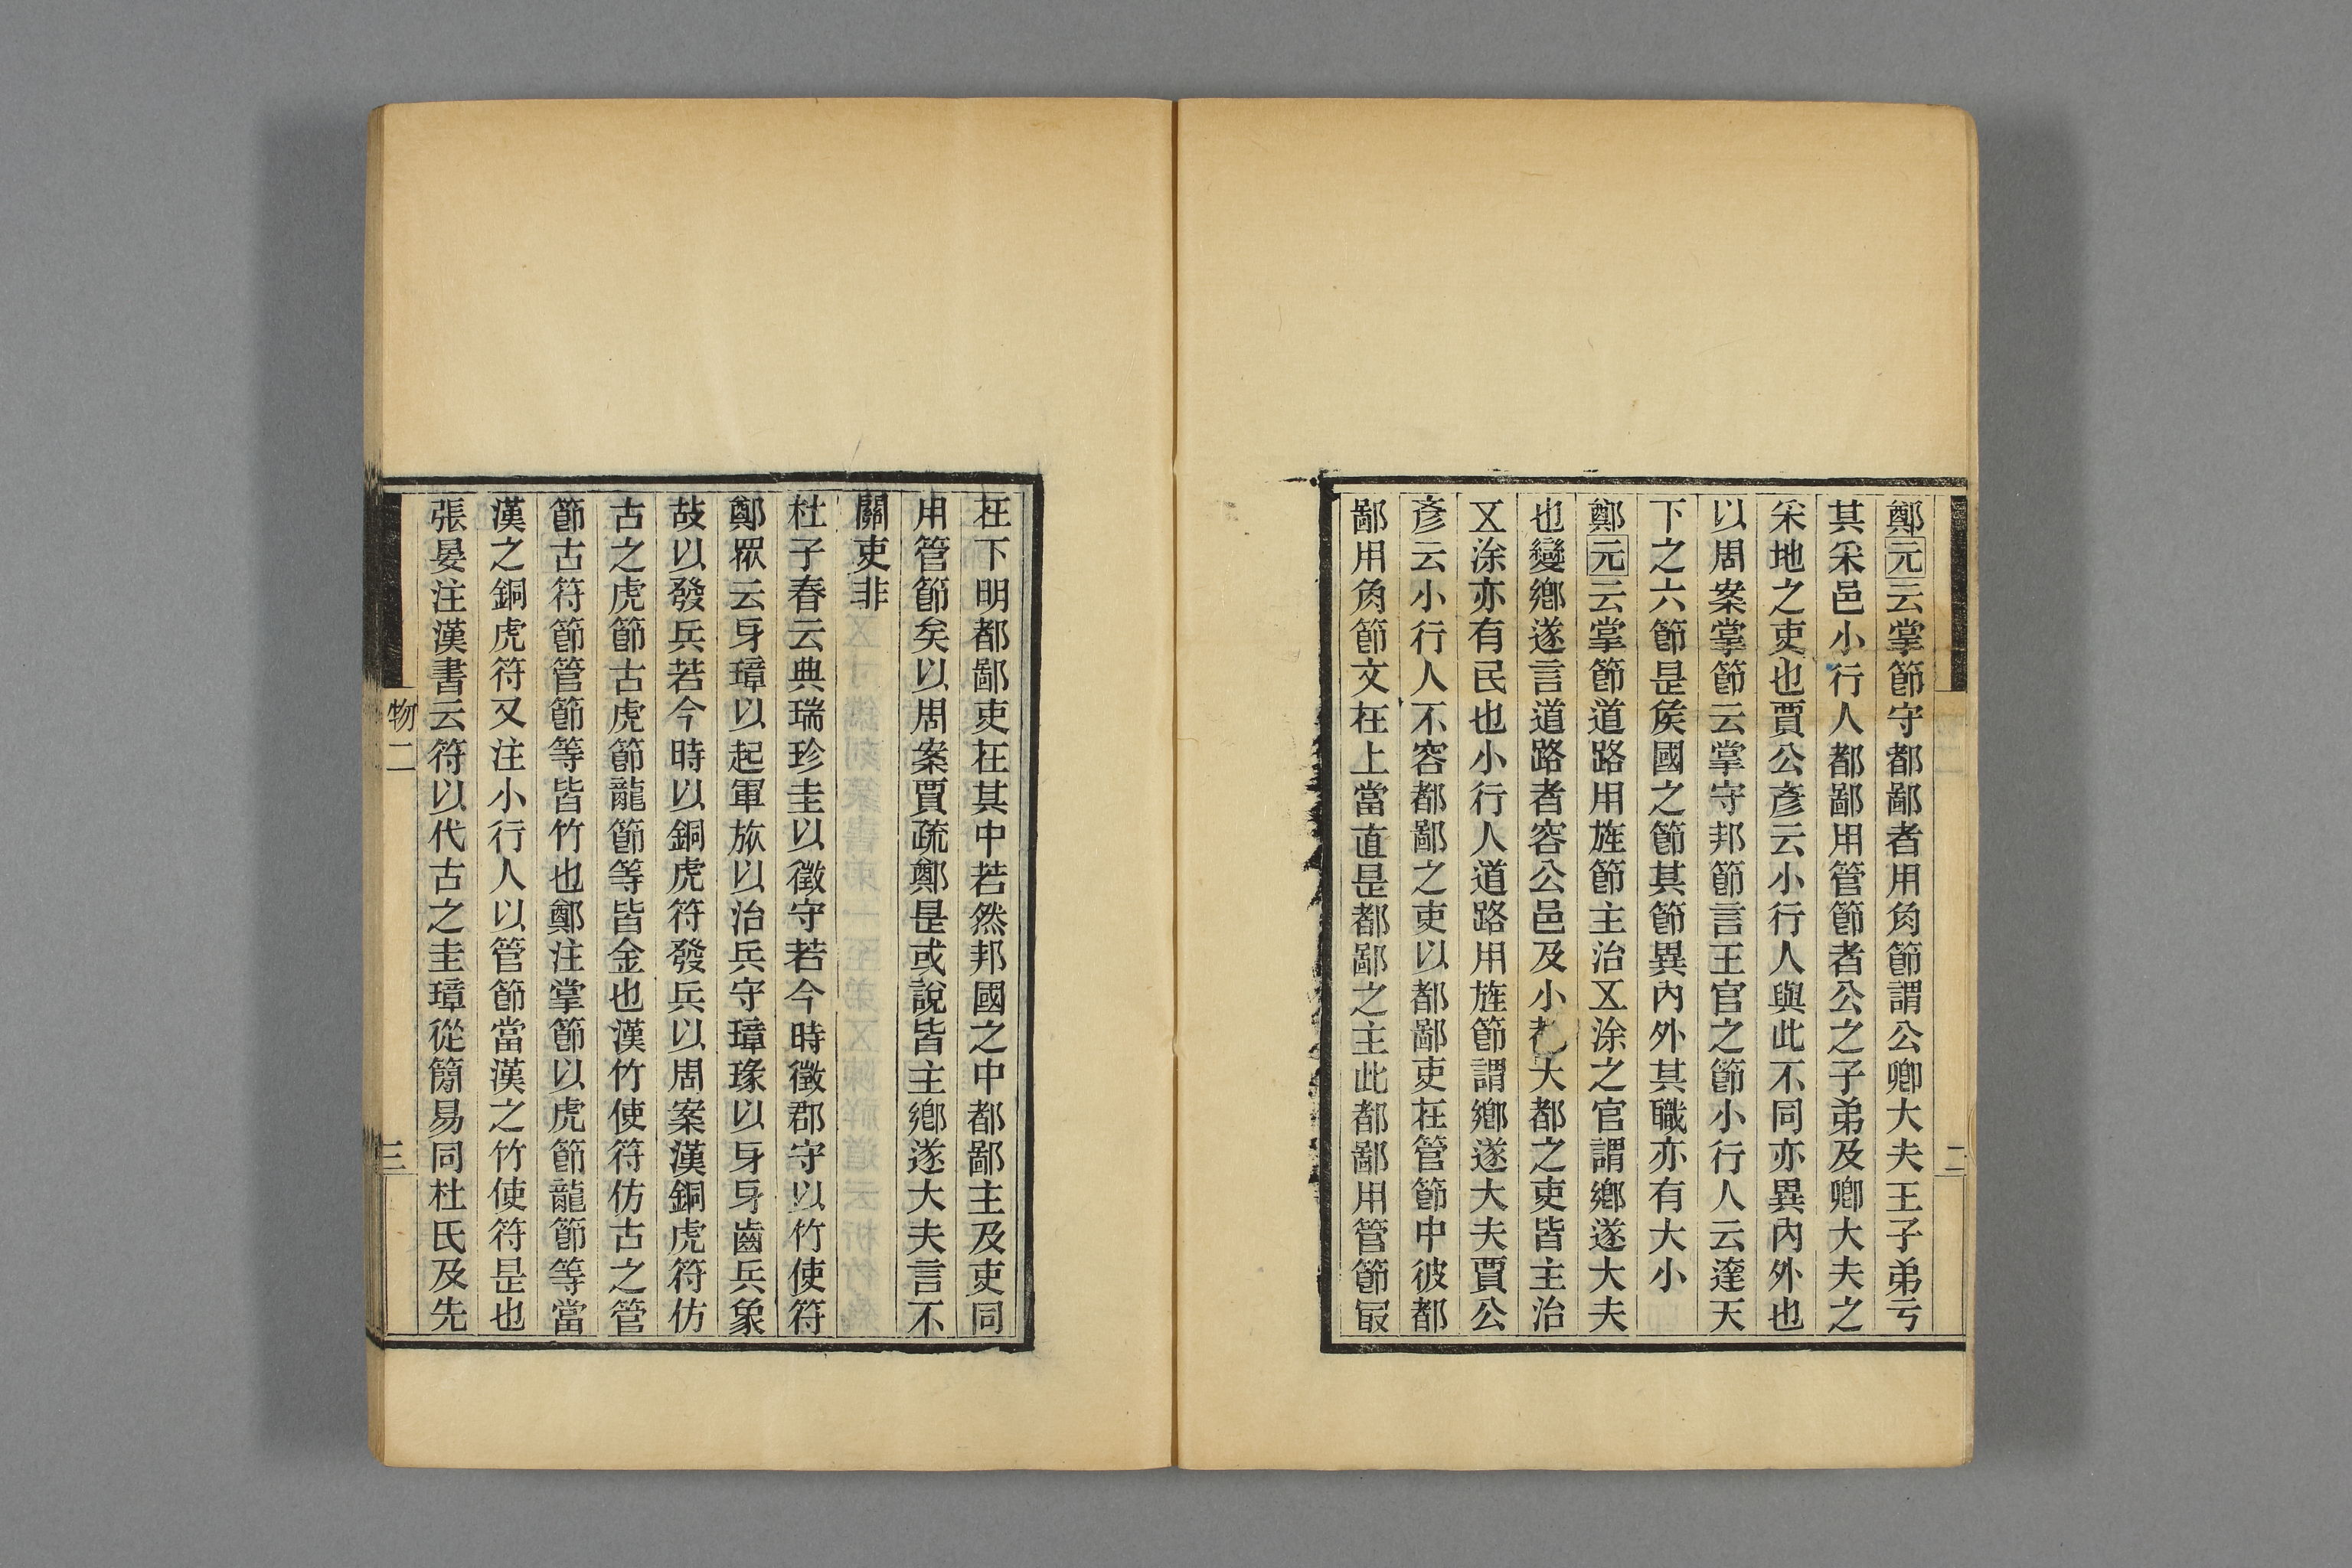 鄭元云掌節守都鄙者用角節謂公卿大夫王子弟亏
其采邑小行人都鄙用管節者公之子弟及卿大夫之
采地之吏也賈公彥云小行人與此不同亦異內外也
以周案掌節云掌守邦節言王官之節小行人云達天
下之六節是矦國之節其節異內外其職亦有大小
鄭元云掌節道路用旌節主治五涂之官謂鄉遂大夫
也變鄉遂言道路者容公邑及小都大都之吏皆主治
五涂亦有民也小行人道路用旌節謂鄉遂大夫賈公
彥云小行人不容都鄙之吏以都鄙吏在管節中彼都
鄙用角節文在上當直是都鄙之主此都鄙用管節㝡
二
在下明都鄙吏在其中若然邦國之中都鄙主及吏同
用管節矣以周案賈疏鄭是或說皆主鄉遂大夫言不
關吏非
杜子春云典瑞珍圭以徵守若今時徵郡守以竹使符
鄭眾云牙璋以起軍旅以治兵守璋瑑以牙牙齒兵象
故以發兵若今時以銅虎符發兵以周案漢銅虎符仿
古之虎節古虎節龍節等皆金也漢竹使符仿古之管
節古符節管節等皆竹也鄭注掌節以虎節龍節等當
漢之銅虎符又注小行人以管節當漢之竹使符是也
張晏注漢書云符以代古之圭璋從簡易同杜氏及先
物二
三